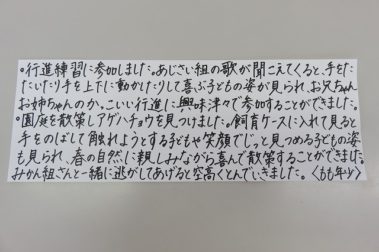 •行進練習に参加しました。あじさい組の歌が聞こえてくると、手をた
たいたり手を上下に動かしたりして喜ぶ子どもの姿が見られ、お兄ちゃん
お姉ちゃんのかっこいい行進に興味津々で参加することができました。
•園庭を散策しアゲハチョウを見つけました。飼育ケースに入れて見ると
手をのばして触れようとする子どもや笑顔でじっと見つめる子どもの姿
も見られ、春の自然に親しみながら喜んで散策することができました。
みかん組さんと一緒に逃がしてあげると空高くとんでいきました。〈もも年少〉